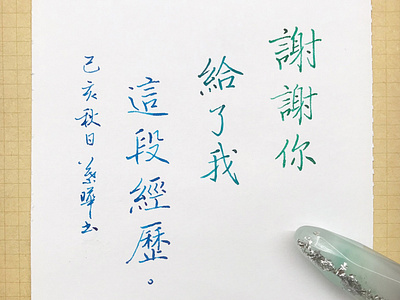 謝謝你
給了我
這段經歷。
己亥秋日 葉曄书